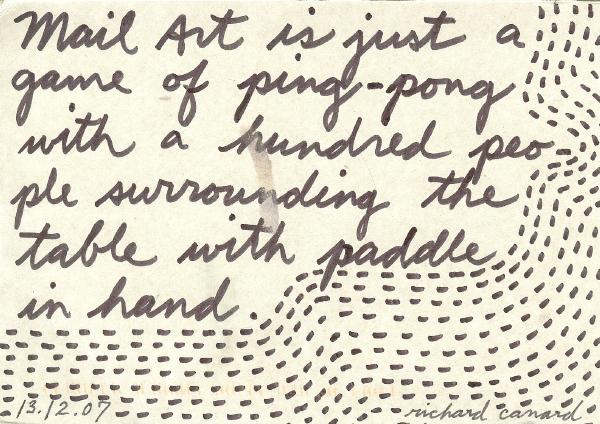 Mail Art is just a
game of ping-pong
with a hundred peo-
ple surrounding the
table with paddle
in hand.
13.12.07
richard canard